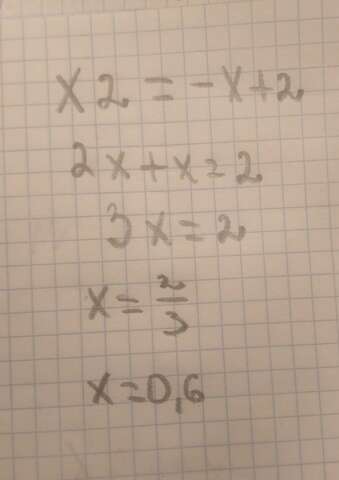 x2 = -x+2
2x+x=2
3x=2
x=2/3
x=0,6